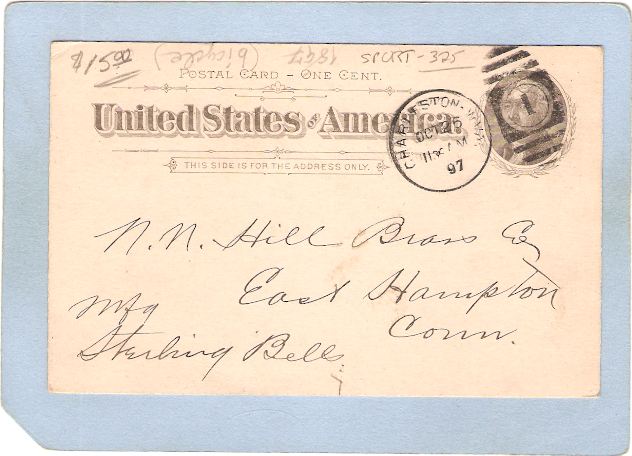 $15.00 (bicycle) 1897 SPORT-325
POSTAL CARD – ONE CENT.
United States of America.
THIS SIDE IS FOR THE ADDRESS ONLY.
OCT 25
11 AM
97
1
N. N. Hill Brass Co
East Hampton
Conn.
Mfg
Sterling Bells